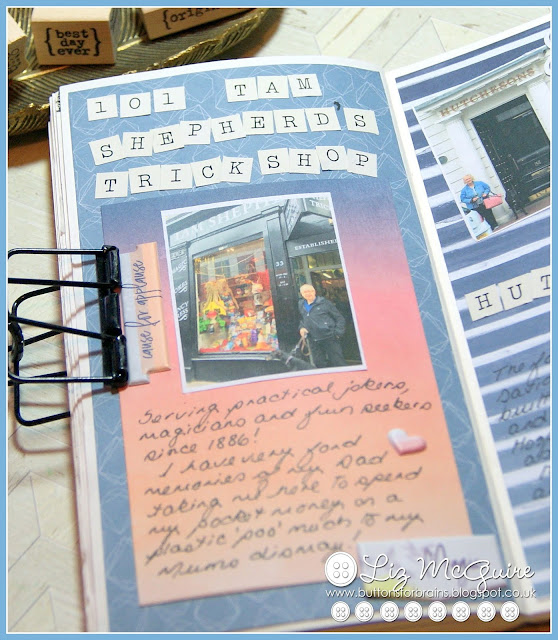 {best
day
ever}
{origin
101 TAM
SHEPHERD'S
TRICK SHOP
HUTCHESONS
TAM SHEPH
ESTABLISHED
33
cause for applause
HUT
Serving practical jokers,
magicians and fun seekers
since 1886!
I have very fond
memories of my Dad
taking me here to spend
my pocket money on a
plastic 'poo' much to my
Mums dismay!
The
Liz McGuire
www.buttonsforbrains.blogspot.co.uk